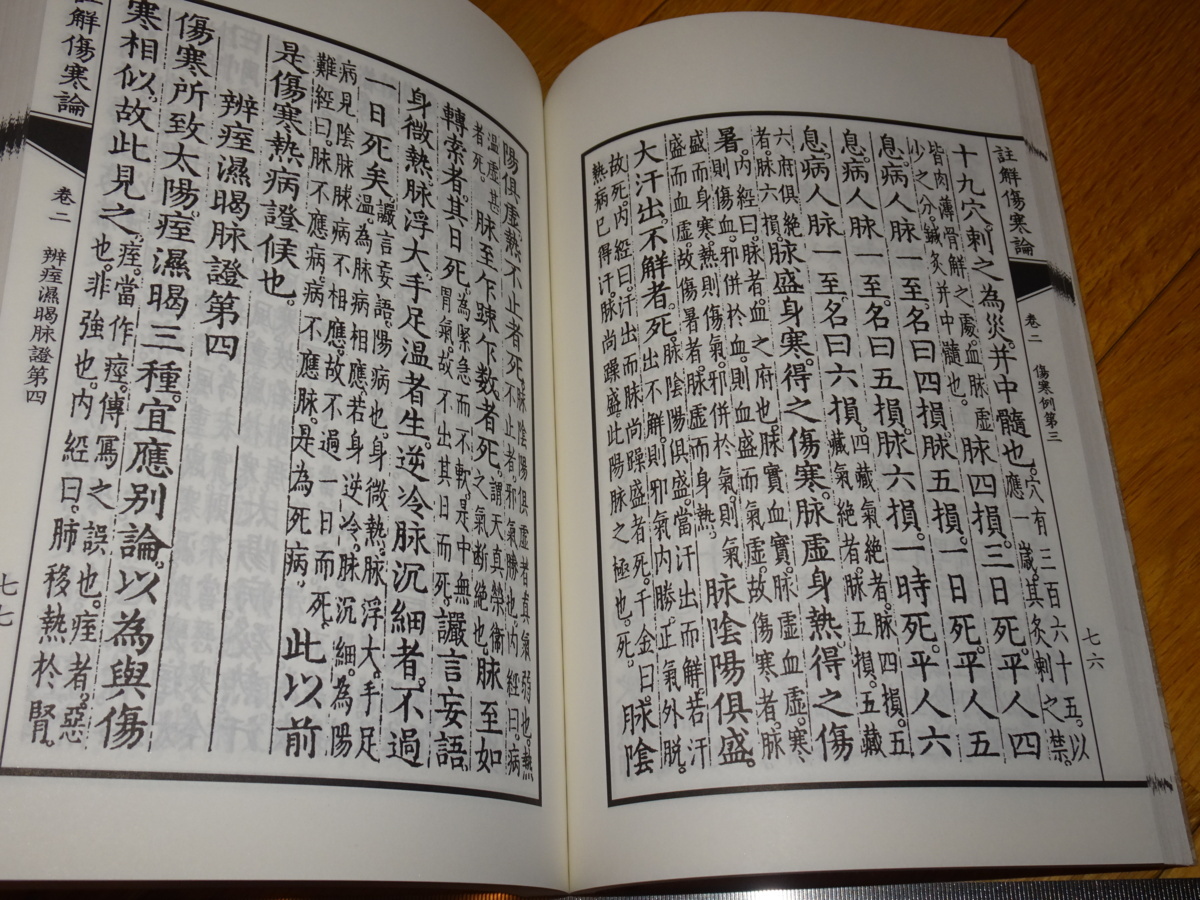 註解傷寒論 卷二 傷寒例第三 七六
十九穴。刺之為災。并中髓也。穴有三百六十五。以應一歲。其灸刺之禁。
皆肉薄骨解之處。血脈虛少之分。鍼灸并中髓也。脈四損。三日死。平人四
息。病人脈一至。名曰四損。脈五損。一日死。平人五
息。病人脈一至。名曰五損。脈六損。一時死。平人六
息。病人脈一至。名曰六損。四藏氣絕者。脈四損。五藏氣絕者。脈五損。五藏
六府俱絕者。脈六損。脈盛身寒。得之傷寒。脈虛身熱。得之傷
暑。內經曰。脈者。血之府也。脈實血實。脈虛血虛。寒則傷血。邪併於血。則血盛而氣虛。故傷寒者。脈
盛而身寒。熱則傷氣。邪併於氣。則氣盛而血虛。故傷暑者。脈虛而身熱。脈陰陽俱盛。
大汗出。不解者。死。脈陰陽俱盛。當汗出而解。若汗出不解。則邪氣內勝。正氣外脫。
故死。內經曰。汗出而脈尚躁盛者死。千金曰。熱病已得汗。脈尚躁盛。此陽脈之極也。死。脈陰
陽俱虛。熱不止者死。脈陰陽俱虛者。真氣弱也。熱不止者。邪氣勝也。內經曰。病
溫虛甚者死。脈至乍踈乍數者死。謂天真榮衛之氣斷絕也。脈至如
轉索者。其日死。為緊急而不軟。是中無胃氣。故不出其日而死。讝言妄語。
身微熱。脈浮大。手足溫者生。逆冷。脈沉細者。不過
一日死矣。讝言妄語。陽病也。身微熱。脈浮大。手足溫。為脈病相應。若身逆冷。脈沉細。為陽
病見陰脈。脈病不相應。故不過一日而死。難經曰。脈不應病。病不應脈。是為死病。此以前
是傷寒熱病證候也。
辨痓濕暍脈證第四
傷寒所致太陽痓濕暍三種。宜應別論。以為與傷
寒相似。故此見之。痓。當作痙。傳寫之誤也。痓者。惡也。非強也。內經曰。肺移熱於腎。
註解傷寒論 卷二 辨痓濕暍脈證第四 七七